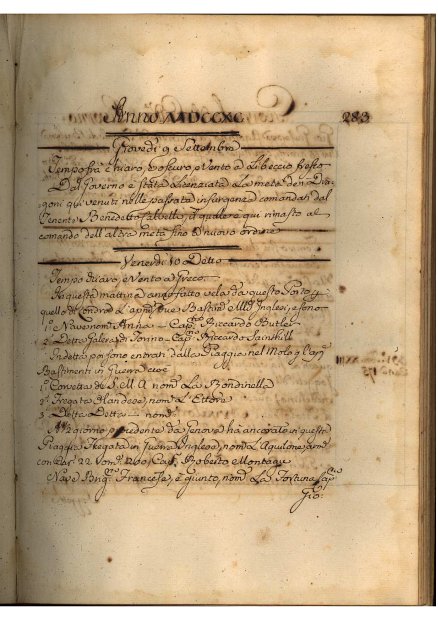 Anno MDCCXC
283
Giovedi 9 Settembre
Tempo frà chiaro, e oscuro, e Vento a Libeccio fresco
Dal Governo è stata licenziata la metà dei Dra-
goni qui venuti nelle passata insurgenza comandati dal
Tenente Benedetto Salvella, il quale è qui rimasto al
comando dell'altra metà fino a nuovo ordine
Venerdi 10 Detto
Tempo chiaro, e Vento a Greco.
In questa mattina anno fatto vela da questo Porto p
quello di Londra l'app due Bastim Inglesi, e sono
1º Nave nom Anna — Cap Riccardo Butler
2º Detta Galera di Torino — Cap Riccardo Sainthill
In detto poi sono entrati dalla Piaggia nel Molo gl'ap
Bastimenti in Guerra cioè
1º Corvetta di S. M. A nom La Bondinella
2º Fregata Olandese, nom L'Ettore
3º Detta Detta — nom
A giorno procedente da Genova ha ancorato in questa
Piaggia Fregata in Guerra Inglese, nom L'Aquilone, arm
con Can 22 Vom 260, Cap Roberto Montagu
Nave Brig Francese, è giunto, nom La Fortuna Cap
Gio: